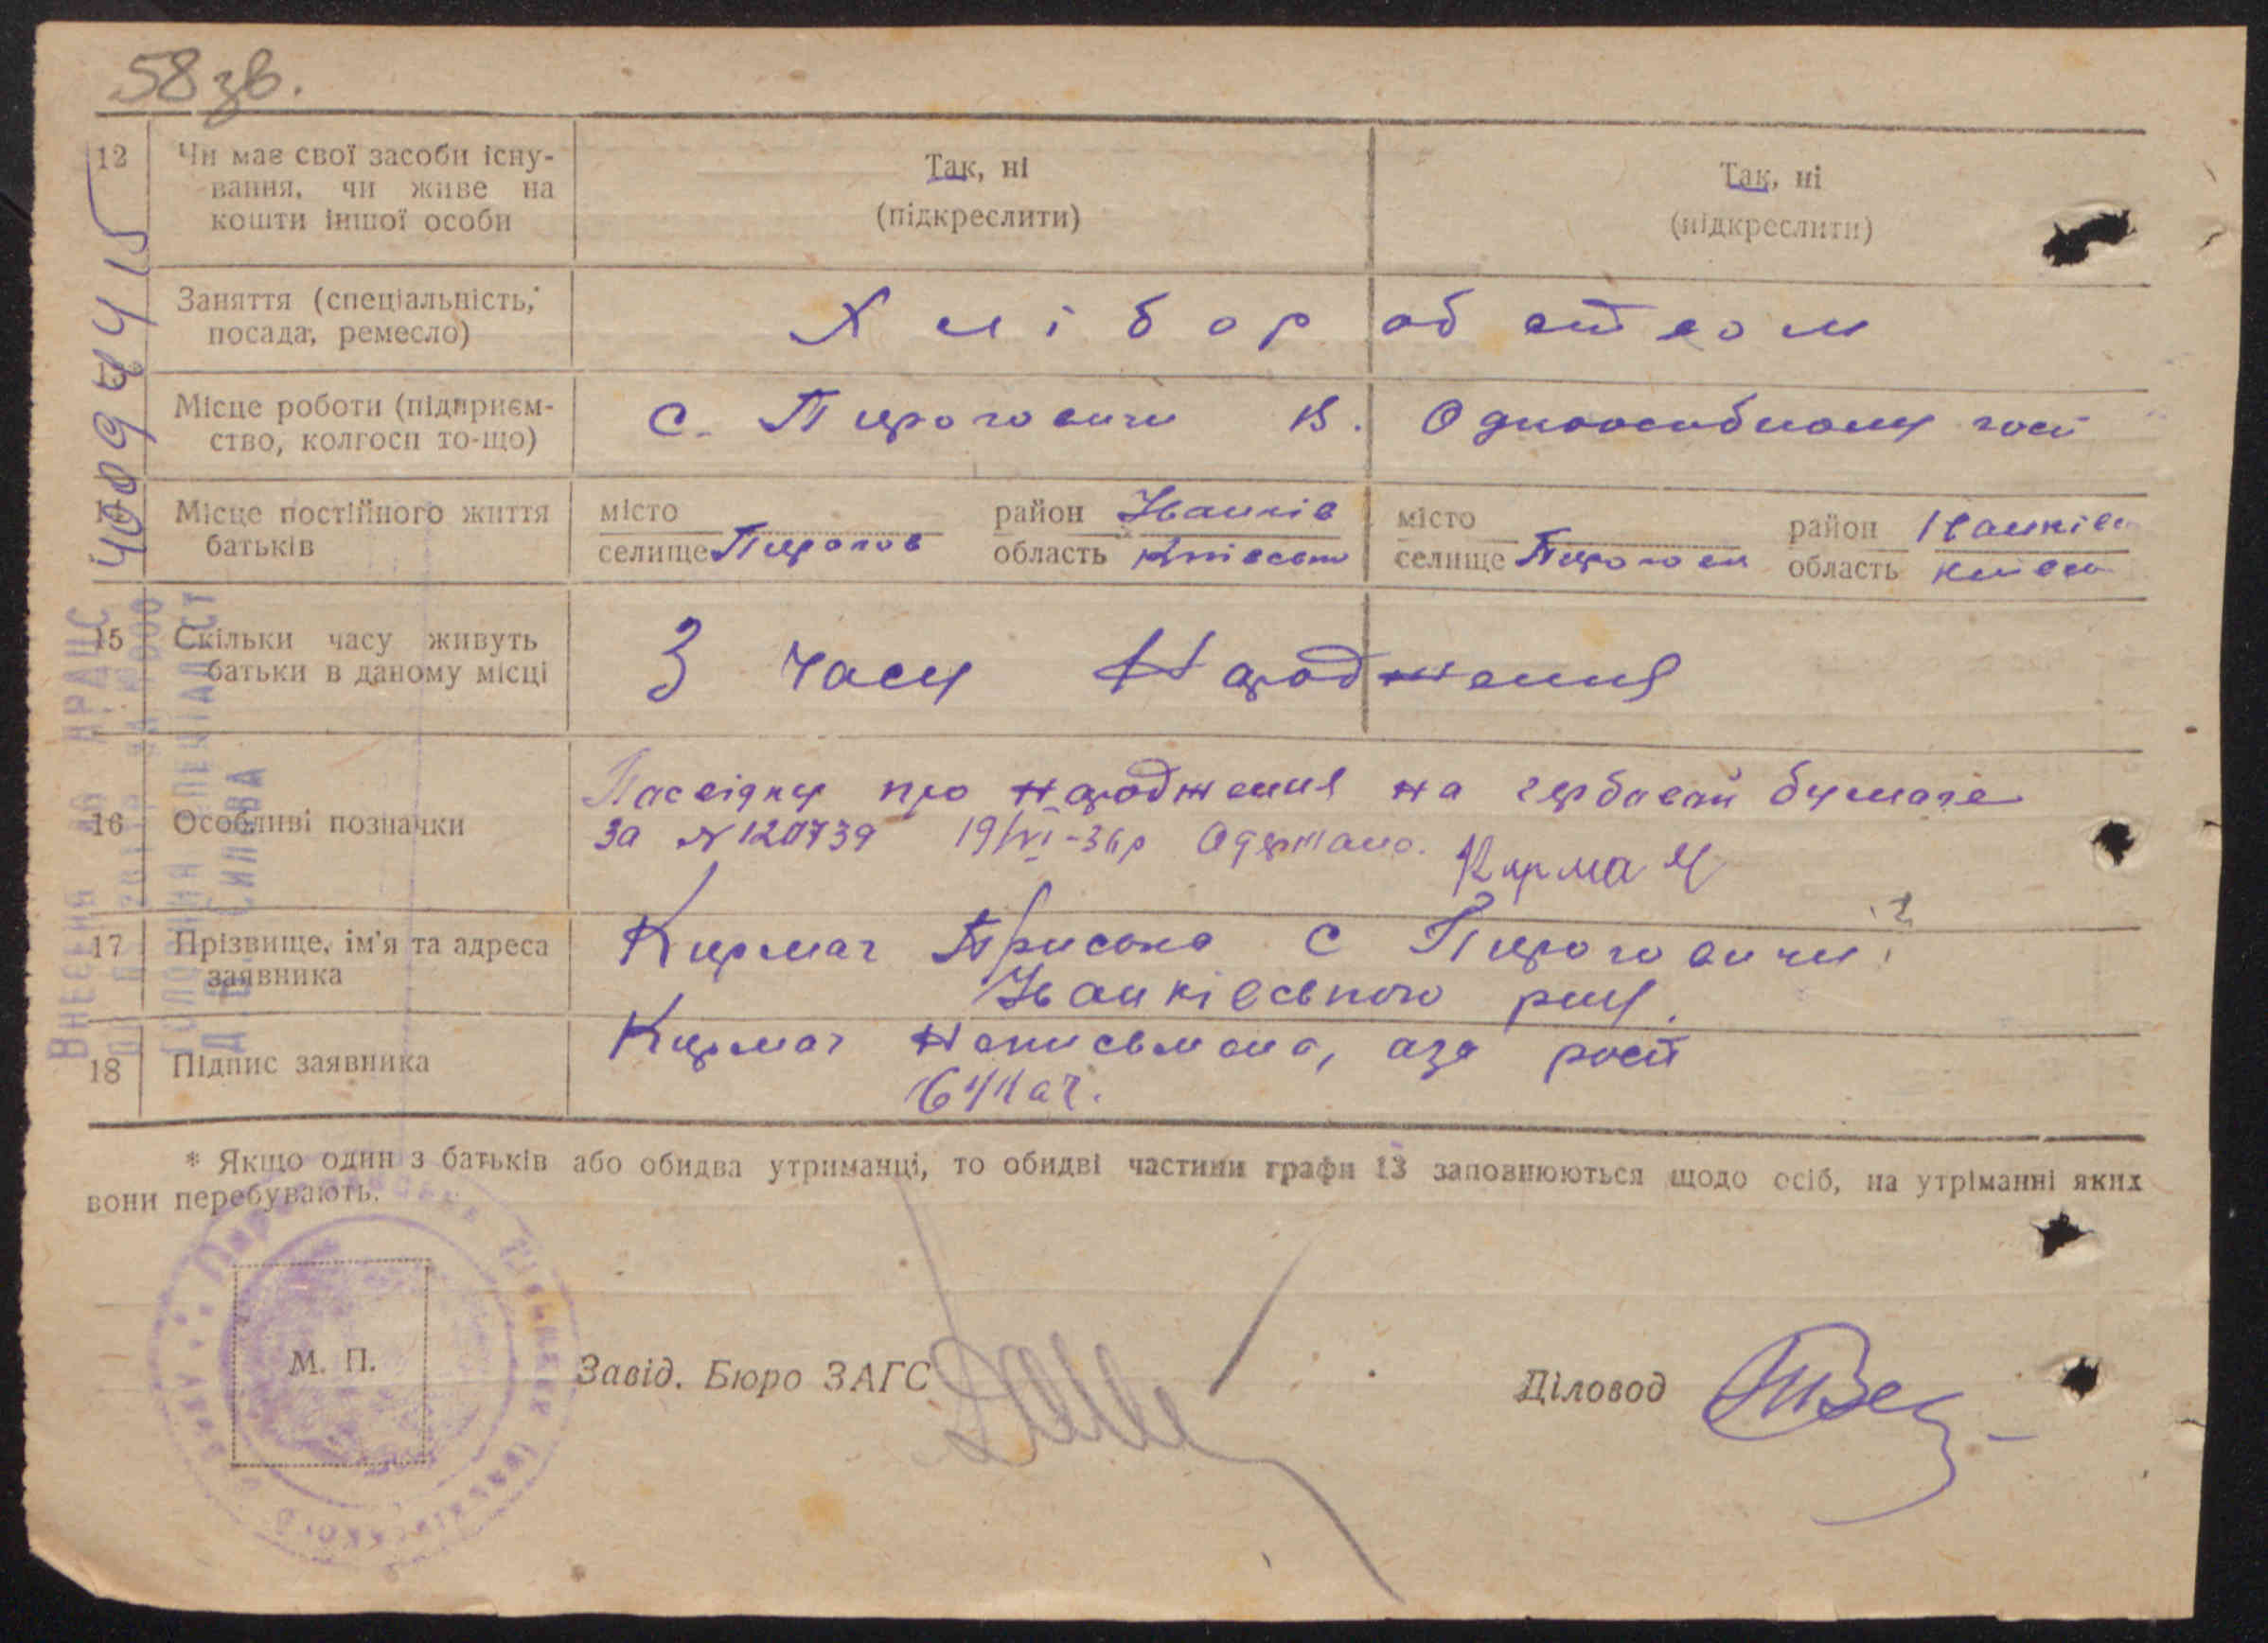 58 зв.
12 Чи має свої засоби існу-
вання, чи живе на
кошти іншої особи
Так, ні
(підкреслити)
Так, ні
(підкреслити)
Заняття (спеціальність,
посада, ремесло)
Хліборобством
Місце роботи (підприєм-
ство, колгосп то-що)
с. Пироговичи В. Одноосибному госп
Місце постійного життя
батьків
місто
селище Пирогов
район Іванків
область Київсько
місто
селище Пирогови
район Іванків
область Київс
15 Скільки часу живуть
батьки в даному місці
З часу Народження
16 Особливі позначки
Посвідку про народження на гербовай бумаге
За № 120739 19/VI-36р Одержано. Кирмач
17 Прізвище, ім'я та адреса
заявника
Кирмач Приська с Пироговичи
Іванківського рну.
18 Підпис заявника
Кирмач Неписьмена, аза
* Якщо один з батьків або обидва утриманці, то обидві частини графи 13 заповнюються щодо осіб, на утріманні яких
вони перебувають.
М. П.
Завід. Бюро ЗАГС
Діловод